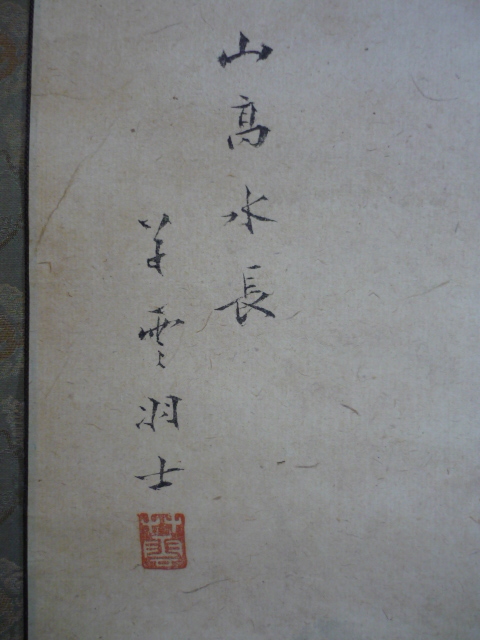 山高水長
草雲羽士